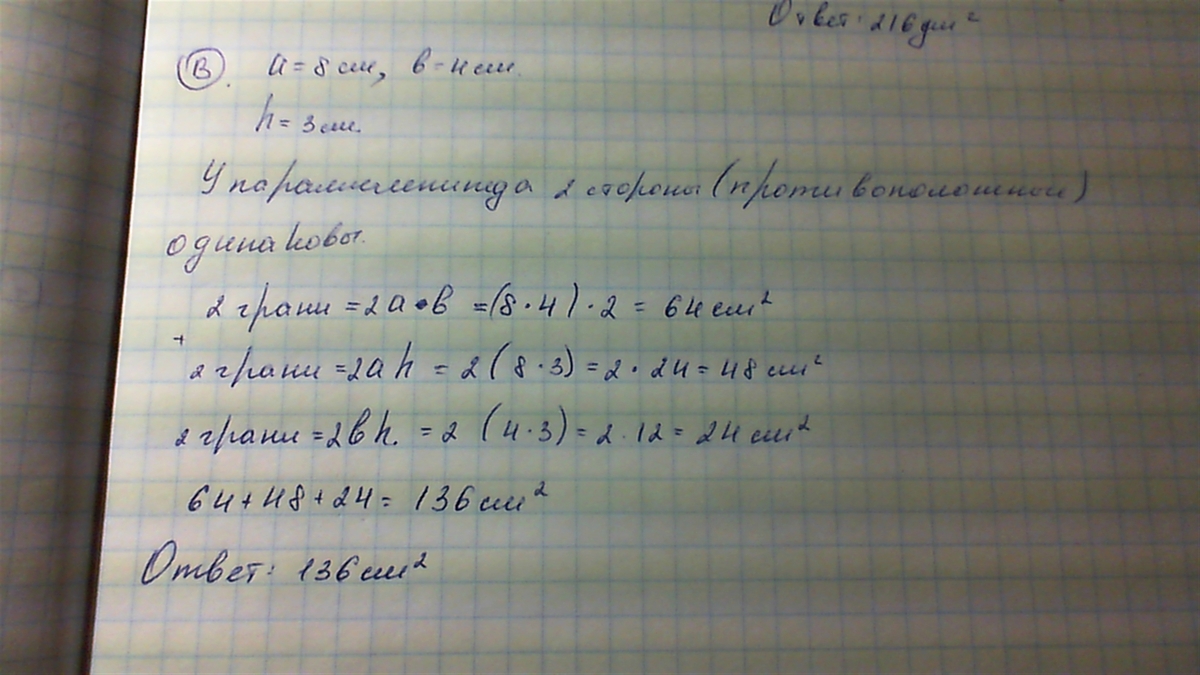 Ответ: 216 дм²
В. a = 8 см, в = 4 см.
h = 3 см.
У параллелепипеда 2 стороны (противоположные)
одинаковы.
2 грани = 2a • в = (8 · 4) · 2 = 64 см²
+
2 грани = 2a h = 2 (8 · 3) = 2 · 24 = 48 см²
2 грани = 2в h. = 2 (4 · 3) = 2 · 12 = 24 см²
64 + 48 + 24 = 136 см²
Ответ: 136 см²